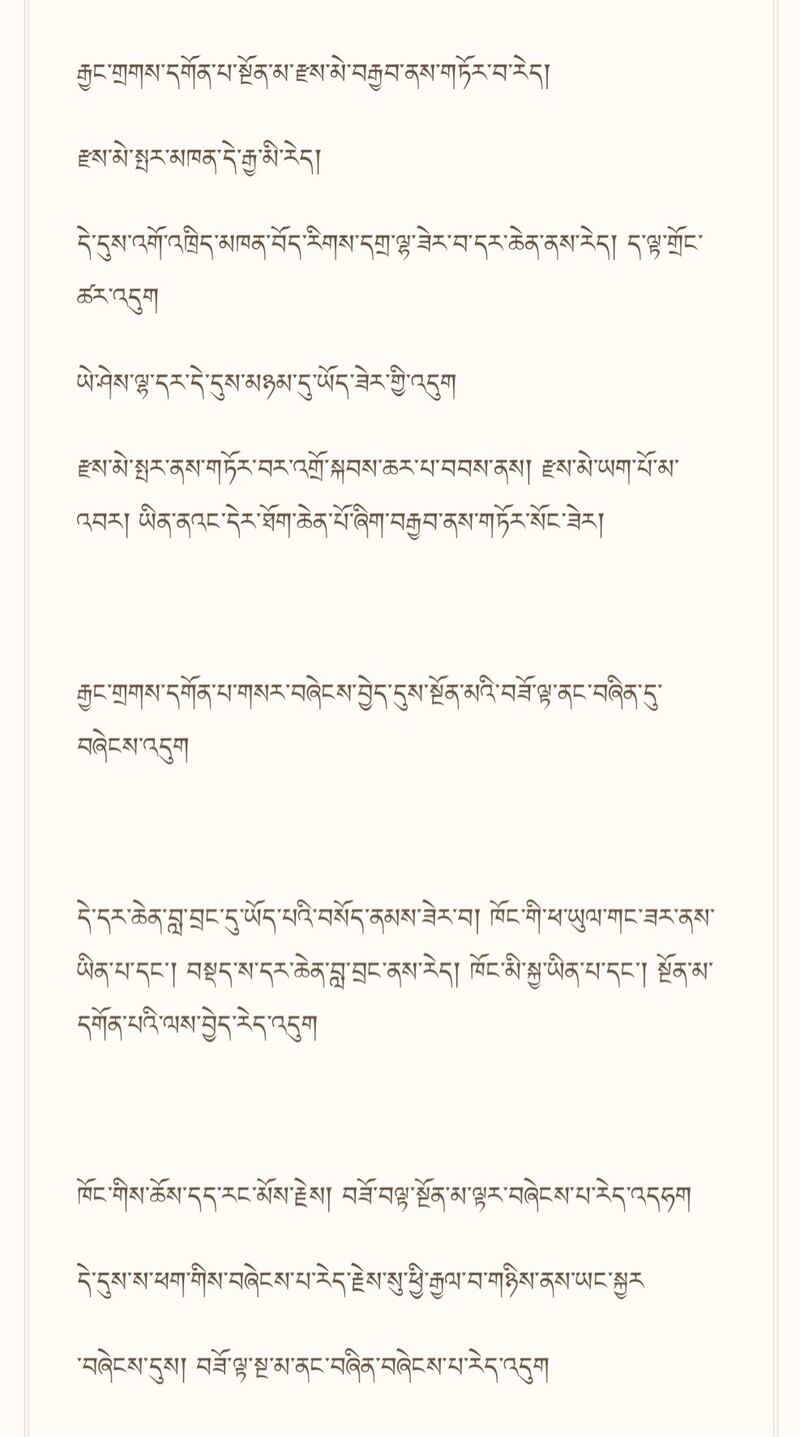 རྒྱང་གྲགས་དགོན་པ་སྔོན་མ་རྫས་མེ་བརྒྱབ་ནས་གཏོར་བ་རེད།
རྫས་མེ་སྤར་མཁན་དེ་རྒྱ་མི་རེད།
དེ་དུས་འགོ་འཁྲིད་མཁན་བོད་རིགས་དགྲ་ལྷ་ཟེར་བ་དར་ཆེན་ནས་རེད། ད་ལྟ་གྲོང་
ཚར་འདུག
ཡེ་ཤེས་ལྷ་དར་དེ་དུས་མཉམ་དུ་ཡོད་ཟེར་གྱི་འདུག
རྫས་མེ་སྤར་ནས་གཏོར་བར་འགྲོ་སྐབས་ཆར་པ་བབས་ནས། རྫས་མེ་ཡག་པོ་མ་
འབར། ཡིན་ནའང་དེར་ཐོག་ཆེན་པོ་ཞིག་བརྒྱབ་ནས་གཏོར་སོང་ཟེར།
རྒྱང་གྲགས་དགོན་པ་གསར་བཞེངས་བྱེད་དུས་སྔོན་མའི་བཟོ་ལྟ་ནང་བཞིན་དུ་
བཞེངས་འདུག
དེ་དར་ཆེན་བླ་བྲང་དུ་ཡོད་པའི་བསོད་ནམས་ཟེར་བ། ཁོང་གི་ཕ་ཡུལ་གང་ཟར་ནས་
ཡིན་པ་དང་། བསྡད་ས་དར་ཆེན་བླ་བྲང་ནས་རེད། ཁོང་མི་སྐྱ་ཡིན་པ་དང་། སྔོན་མ་
དགོན་པའི་ལས་བྱེད་རེད་འདུག
ཁོང་གིས་ཆོས་དད་རང་མོས་རྗེས། བཟོ་བལྟ་སྔོན་མ་ལྟར་བཞེངས་པ་རེད་འདཧག
དེ་དུས་ས་ཕག་གིས་བཞེངས་པ་རེད་རྗེས་སུ་ཕྱི་རྒྱལ་བ་གཉིས་ནས་ཡང་སྐྱར
་བཞེངས་དུས། བཟོ་ལྟ་སྔ་མ་ནང་བཞིན་བཞེངས་པ་རེད་འདུག